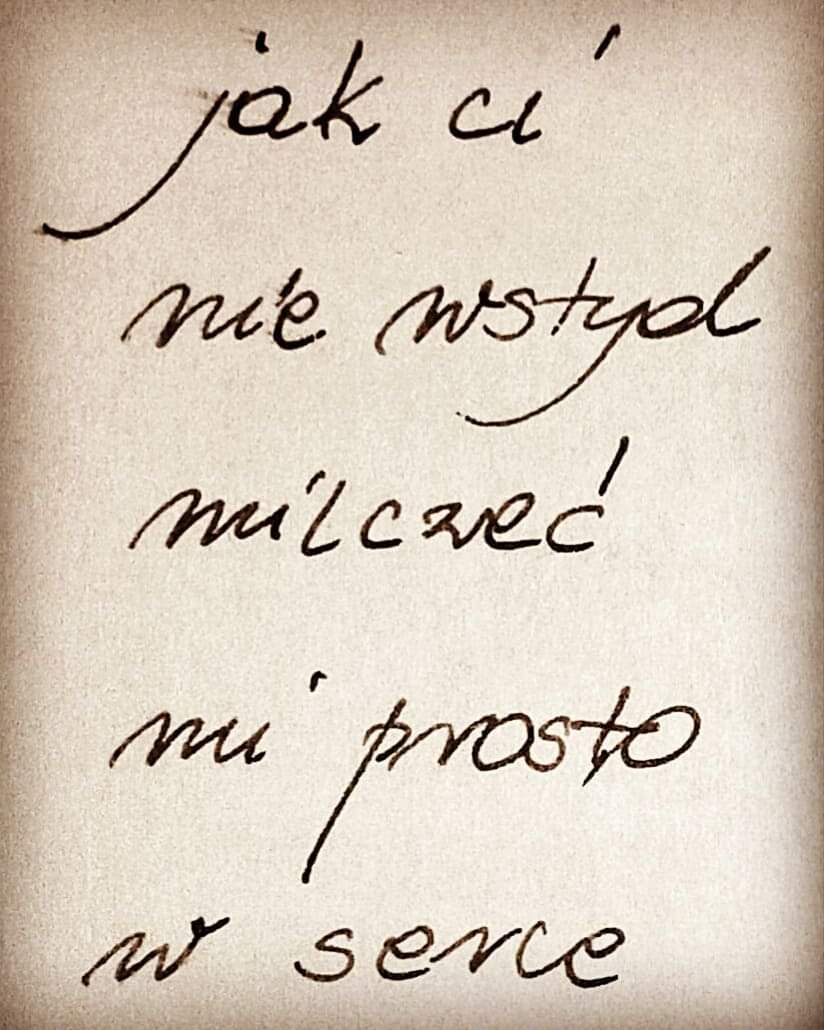 jak ci
nie wstyd
milczeć
mi prosto
w serce